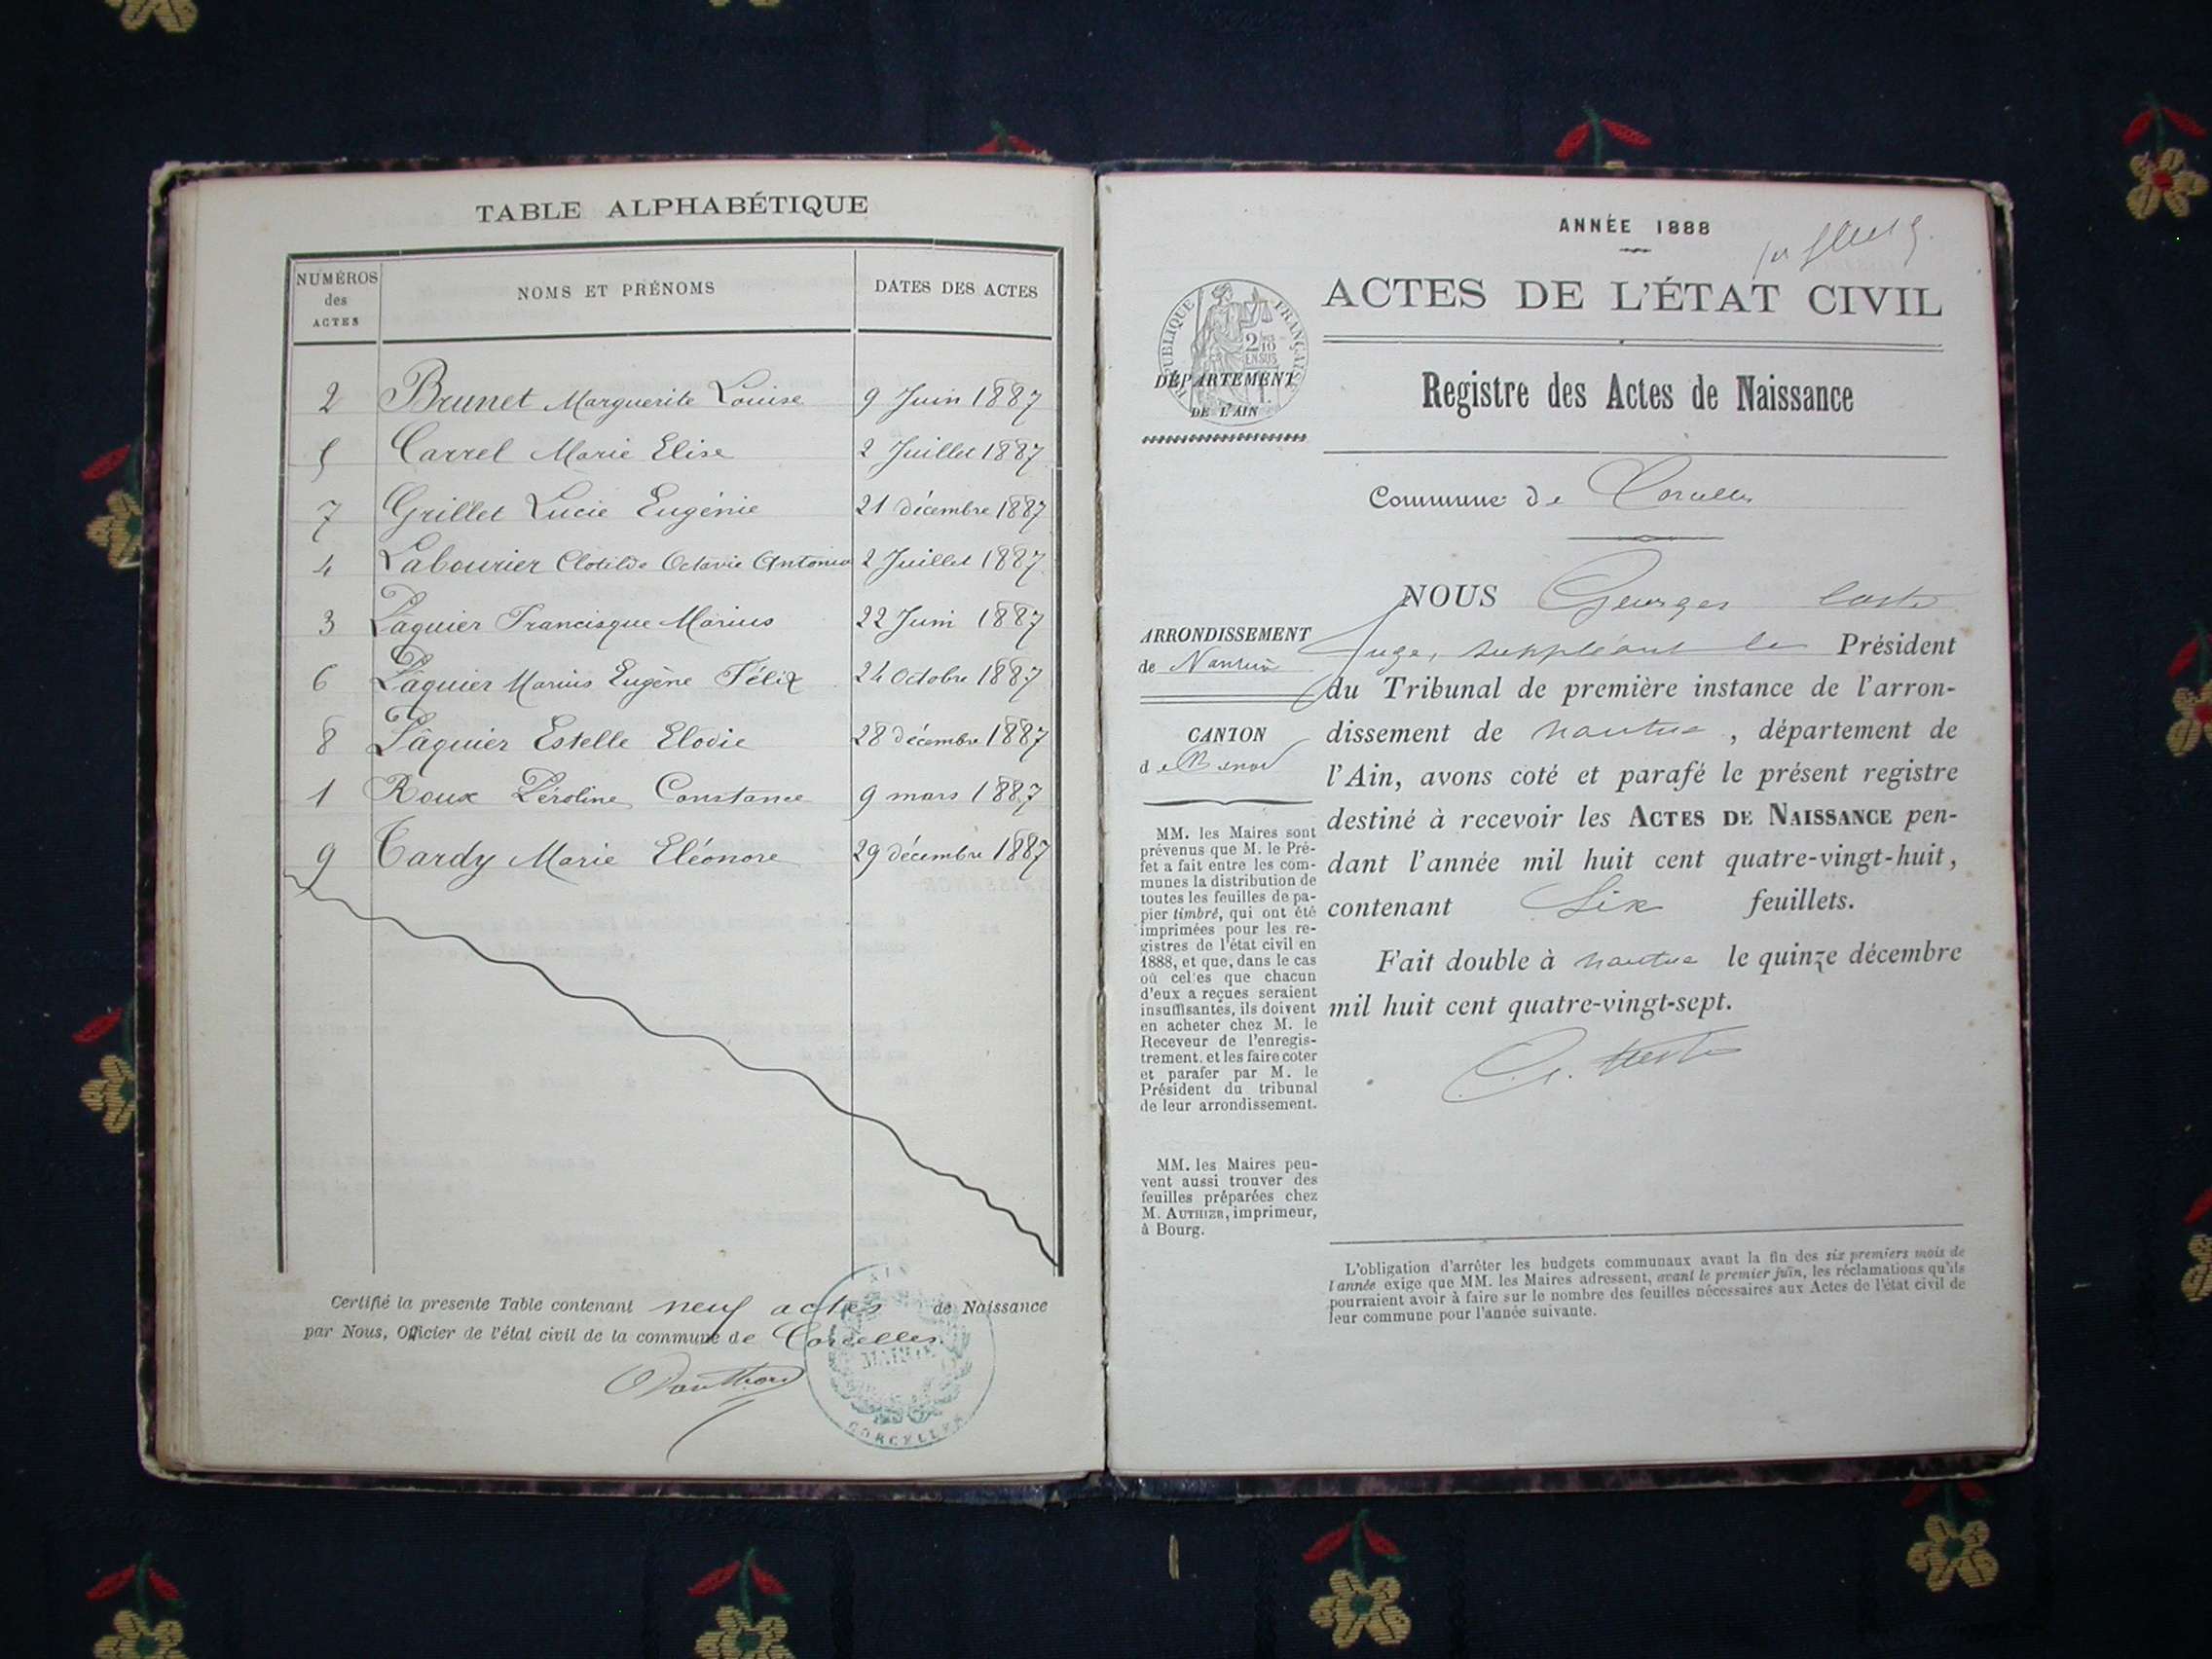 TABLE ALPHABÉTIQUE
NUMÉROS des ACTES
NOMS ET PRÉNOMS
DATES DES ACTES
2 Brunet Marguerite Louise 9 Juin 1887
5 Carrel Marie Elise 2 Juillet 1887
7 Grillet Lucie Eugénie 21 décembre 1887
4 Labourier Clotilde Octavie Antonia 2 Juillet 1887
3 Pâquier Francisque Marius 22 Juin 1887
6 Pâquier Marius Eugène Félix 24 Octobre 1887
8 Pâquier Estelle Elodie 28 décembre 1887
1 Roux Péroline Constance 9 mars 1887
9 Tardy Marie Eléonore 29 décembre 1887
Certifié la presente Table contenant neuf actes de Naissance
par Nous, Officier de l'état civil de la commune de Corcelles
MAIRIE
CORCELLES
ANNÉE 1888
RÉPUBLIQUE FRANÇAISE
ACTES DE L'ÉTAT CIVIL
DÉPARTEMENT
DE L'AIN
Registre des Actes de Naissance
Commune de Corcelles
NOUS Georges
ARRONDISSEMENT
de Nantua
Juge, suppléant le Président
du Tribunal de première instance de l'arron-
CANTON
dissement de Nantua, département de
l'Ain, avons coté et parafé le présent registre
destiné à recevoir les ACTES DE NAISSANCE pen-
dant l'année mil huit cent quatre-vingt-huit,
contenant Six feuillets.
Fait double à Nantua le quinze décembre
mil huit cent quatre-vingt-sept.
MM. les Maires sont
prévenus que M. le Pré-
fet a fait entre les com-
munes la distribution de
toutes les feuilles de pa-
pier timbré, qui ont été
imprimées pour les re-
gistres de l'état civil en
1888, et que, dans le cas
où celles que chacun
d'eux a reçues seraient
insuffisantes, ils doivent
en acheter chez M. le
Receveur de l'enregis-
trement, et les faire coter
et parafer par M. le
Président du tribunal
de leur arrondissement.
MM. les Maires peu-
vent aussi trouver des
feuilles préparées chez
M. AUTHIER, imprimeur,
à Bourg.
L'obligation d'arrêter les budgets communaux avant la fin des six premiers mois de
l'année exige que MM. les Maires adressent, avant le premier juin, les réclamations qu'ils
pourraient avoir à faire sur le nombre des feuilles nécessaires aux Actes de l'état civil de
leur commune pour l'année suivante.